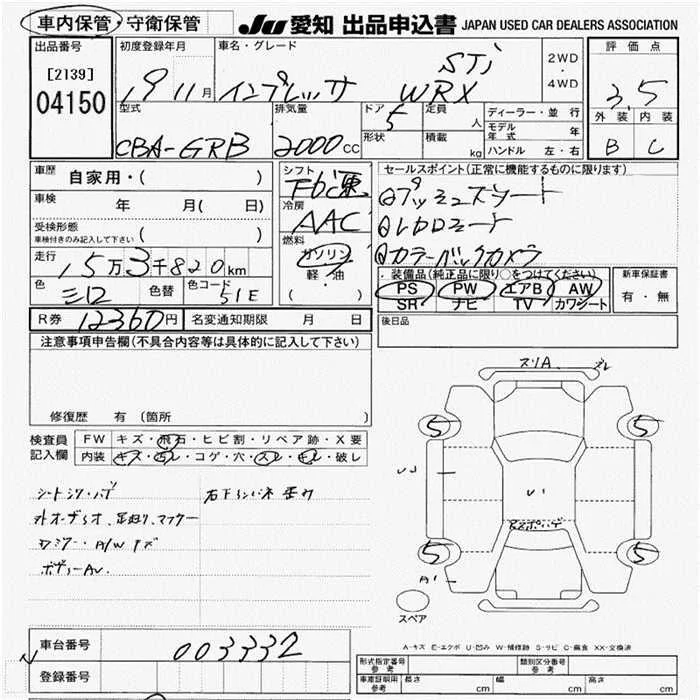 車内保管・守衛保管 JU 愛知 出品申込書 JAPAN USED CAR DEALERS ASSOCIATION
出品番号 初度登録年月 車名・グレード 2WD・4WD 評価点
[2139] 19 11月 インプレッサ WRX STi 3.5
04150
型式 排気量 ドア 定員 人 ディーラー・並行 外装 内装
CBA-GRB 2000CC 5 モデル年式 年 B C
形状 積載 kg ハンドル 左・右
車歴 自家用・( ) シフト セールスポイント(正常に機能するものに限ります)
車検 年 月( 日) 冷房 プッシュスタート
受検形態 AAC レカロシート
車検付きのみ記入して下さい ( ) 燃料 カラーバックカメラ
走行 15万3千820km ガソリン
軽・油
( ・ )
・装備品(純正品に限り○をつけてください) 新車保証書
色 色替 色コード 51E PS PW エアB AW 有・無
SR ナビ TV カワシート
R券 12360円 名変通知期限 月 日 後日品
注意事項申告欄(不具合内容等は具体的に記入して下さい)
修復歴 有(箇所 )
検査員 FW キズ・飛石・ヒビ割・リペア跡・X要
記入欄 内装 キズ・汚レ・コゲ・穴・スレ・キレ・破レ
スリA
5 5
U1
5 5
A1
スペア
A-キズ E-エクボ U-凹み W-補修跡 S-サビ C-腐食 XX-交換済
車台番号 003332
登録番号
形式指定番号 参考 類別区分番号 参考
車庫証明用 参考 長さ cm 幅 cm 高さ cm